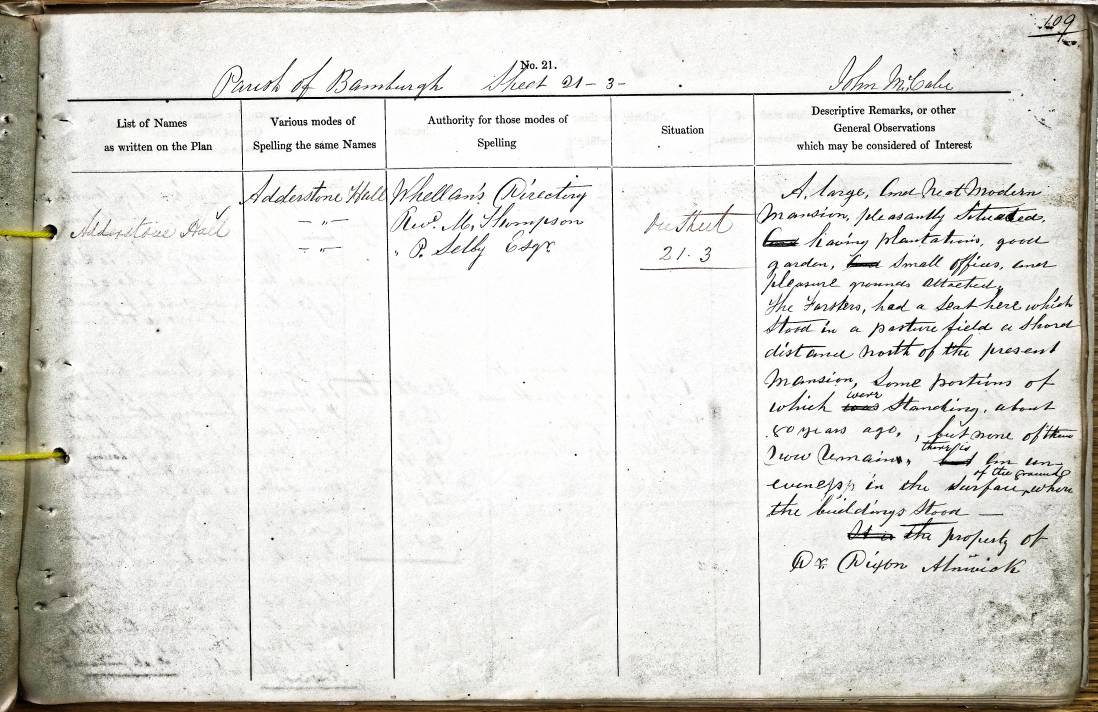 109
No. 21.
Parish of Bamburgh Sheet 21-3-
John McCabe
List of Names
as written on the Plan
Various modes of
Spelling the same Names
Authority for those modes of
Spelling
Situation
Descriptive Remarks, or other
General Observations
which may be considered of Interest
Adderstone Hall
Adderstone Hall
— " —
— " —
Whellan's Directory
Revd. M. Thompson
" P. Selby Esqr
On Sheet
21.3
A large, and neat Modern
Mansion, pleasantly Situated.
and having plantations, good
garden, and small offices, and
pleasure grounds attached.
The Forsters, had a seat here which
stood in a pasture field a short
distance north of the present
Mansion, Some portions of
which was were Standing, about
80 years ago, , but none of them
now remains, but there is an un-
eveness in the surface of the ground, where
the buildings stood —
It is the property of
Dr. Dixon Alnwick